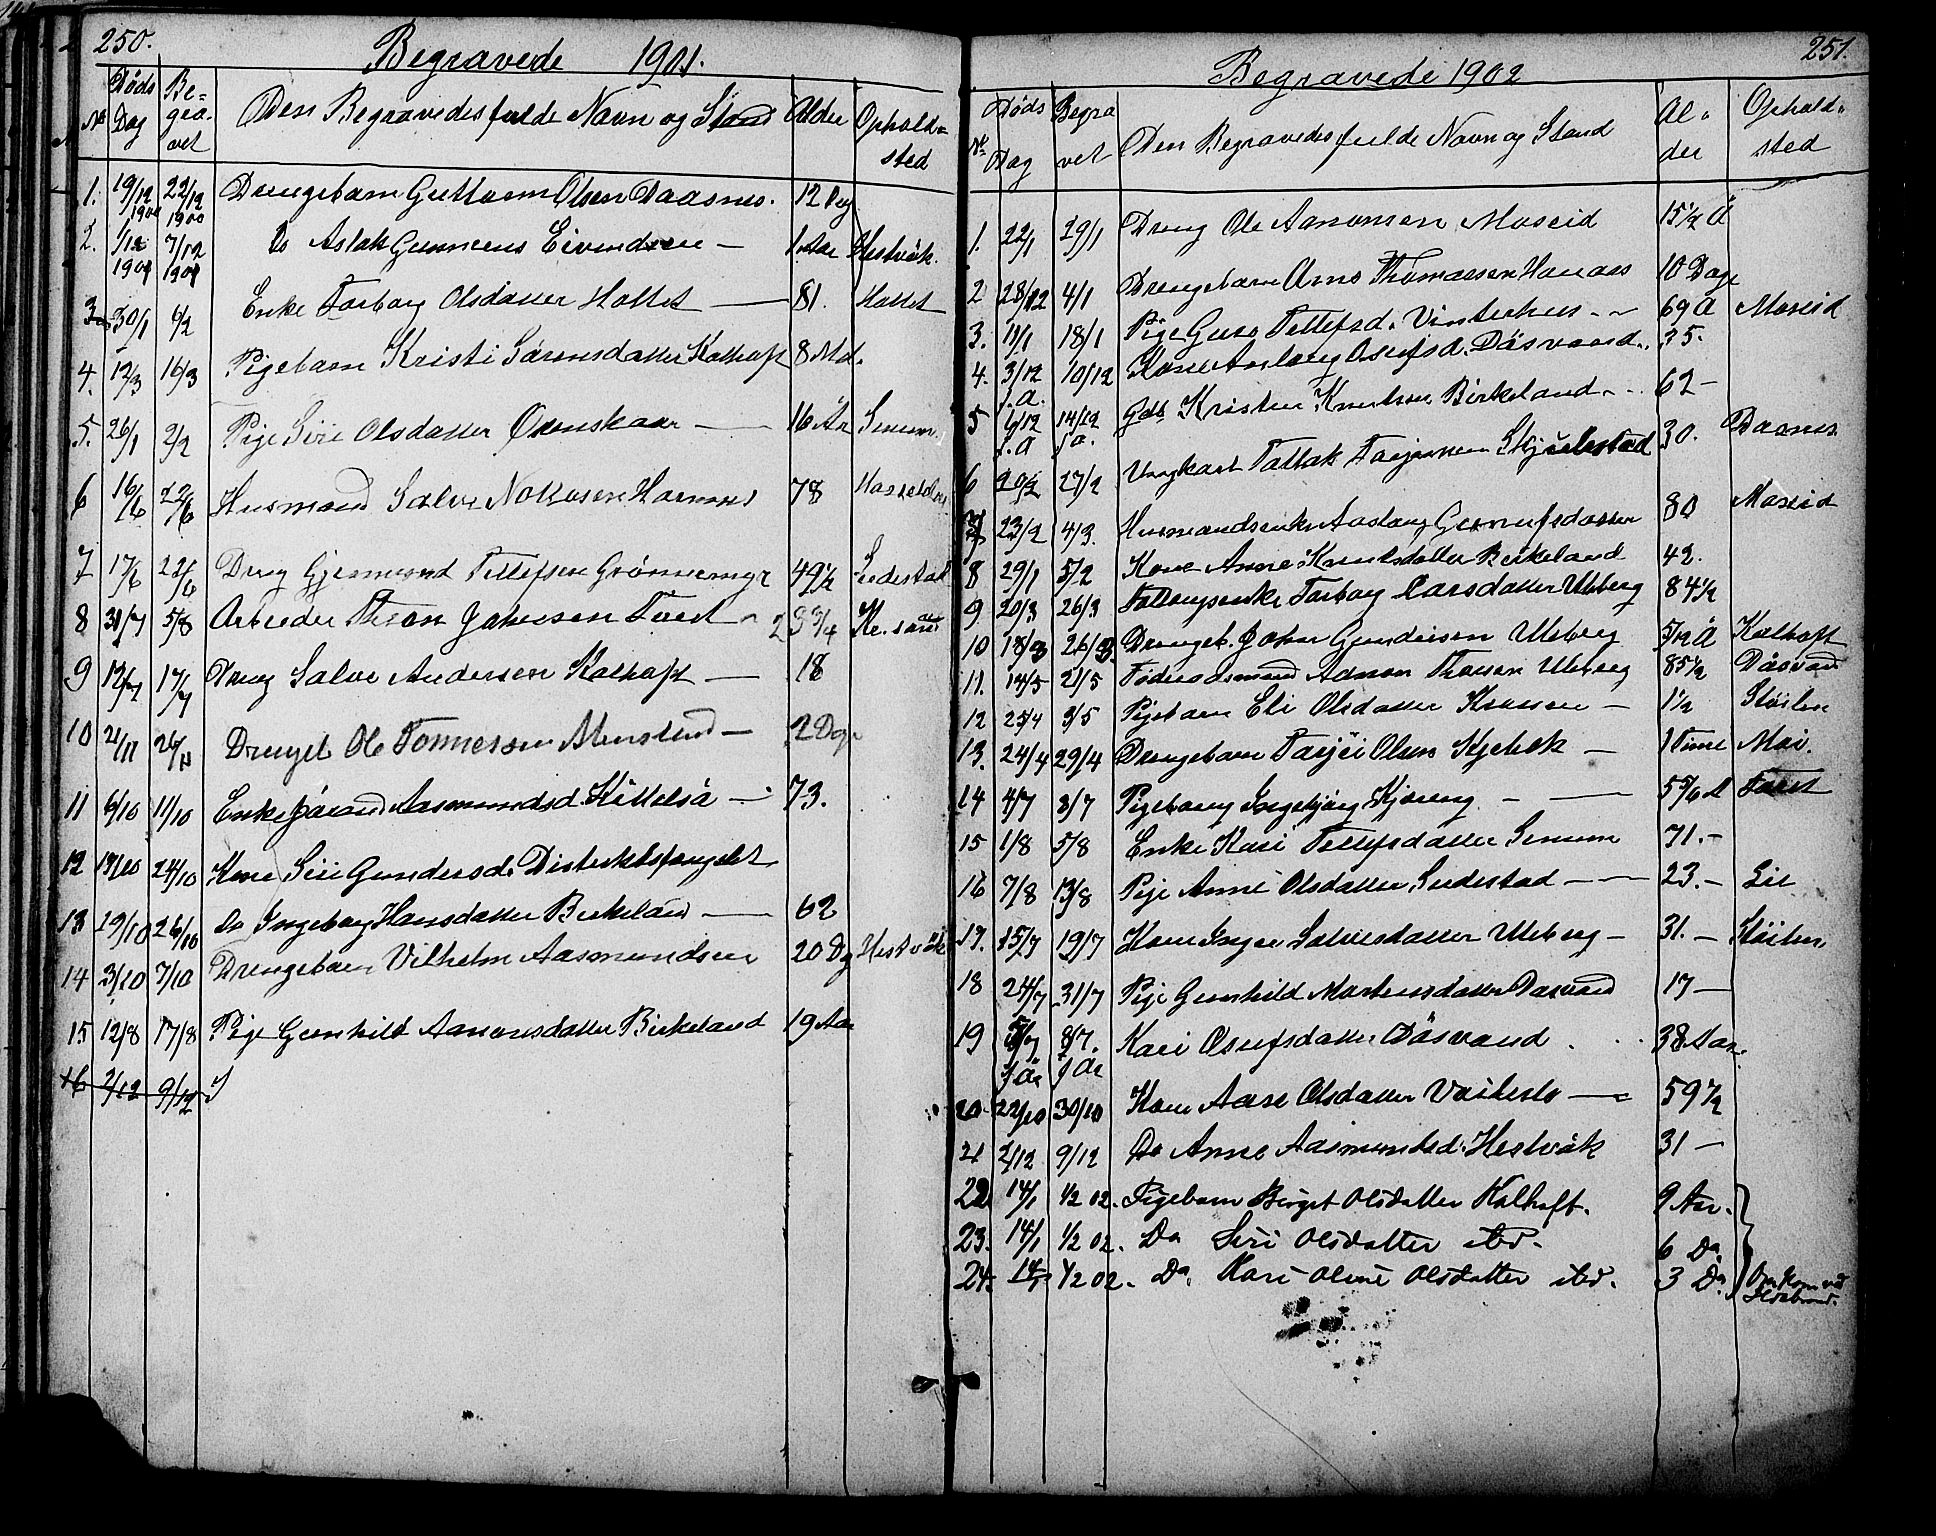 250.
Begravede 1901.
No Døds Dag Begravet Den Begravedes fulde Navn og Stand Alder Opholdssted
1. 19/12 1900 22/12 1900 Drengebarn Guttorm Olsen Daasnes. 12 Dg
2. 1/12 1901 7/12 1901 Do Aslak Eivindsen — 1 Aar Hestvåk.
3 30/1 6/2 Enke Torborg Olsdatter Holtet — 81. Holtet
4. 12/3 16/3 Pigebarn Kristi Sørensdatter Kalhoft 8 Md.
5. 26/1 2/2 Pige Siri Olsdatter — 16 År
6 16/6 22/6 Husmand Salve 78
7 17/6 22/6 Dreng Gjermund Tellefsen Grønnemyr 49 1/2
8 31/7 5/8 Arbeider Johnsen 23 3/4 Kr.sand
9 12/7 17/7 Dreng Salve Andersen Kalhoft — 18
10 21/11 26/11 Drengeb. Ole Tønnesen — 2 Dg.
11 6/10 11/10 Enke Aasmundsd. Kittelså — 73.
12 19/10 24/10 Kone Siri Gundersd. Distriktsfængslet
13 19/10 26/10 Do Ingeborg Hansdatter Birkeland — 62
14 3/10 7/10 Drengebarn Vilhelm Aasmundsen 20 Dg Hestvåk
15 12/8 17/8 Pige Gunhild Aanonsdatter Birkeland 19 Aar
16 2/12 9/12 S
251.
Begravede 1902
No Døds Dag Begravet Den Begravedes fulde Navn og Stand Alder Opholdssted
1. 22/1 29/1 Dreng Ole Aanonsen Moseid 15 1/2 Å
2 28/12 4/1 Drengebarn Arne Thomassen 10 Dage
3. 11/1 18/1 Pige Tellefsd. Vinterhus - - 69 Å Moseid
4. 3/12 f.a. 10/12 Kone Osufsd. Dåsvand. 35.
5 6/12 f.a 14/12 f.a. Kristen Knutsen Birkeland. - 62 —
6 20/2 27/2 Ungkarl Tallak 30. Daasnes
7 23/2 4/3. Husmandsenke Aaslaug 80 Moseid
8 29/1 5/2 Kone Anne Knutsdatter Birkeland 42.
9 20/3 26/3 Torborg Larsdatter Uleberg 84 1/2
10 18/3 26/3. Drengeb. Johan Gundersen Uleberg 5/12 Å Kalhoft
11. 14/5 21/5 Føderaadsmand Uleberg 85 1/2 Dåsvand
12 25/4 3/5 Pigebarn Eli Olsdatter — 1 1/2 Støilen
13. 24/4 29/4 Drengebarn Tarjei Olsen — 1 Time Moi.
14 4/7 8/7 Pigebarn Ingebjørg — 5 5/6 Å
15 1/8 5/8 Enke Kari Tellefsdatter 71. —
16 7/8 13/8 Pige Anne Olsdatter — 23. — Lie
17. 15/7 19/7 Kone Inger Salvesdatter Uleberg — 31. — Støilen
18 24/7 31/7 Pige Gunhild Mortensdatter Dåsvand 17 —
19 5/7 f år 8/7. f år Kari Osufsdatter Dåsvand . 38 Aar.
20. 22/10 30/10 Kone Aase Olsdatter — 59 1/2
21 2/12 9/12 Do Anne Aasmundsd. Hestvåk 31 —
22 14/1 1/2 02. Pigebarn Birget Olsdatter Kalhoft. 9 Aar.
23. 14/1 1/2 02. Do Siri Olsdatter ibd. 6 Do
24. 14/1 1/2 02. Do. Kari Oline Olsdatter ibd. 3 Do. Omkom ved Ildebrand.